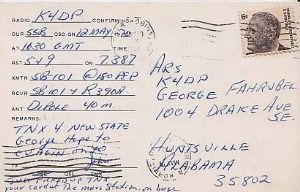 RADIO K4DP CONFIRMING
OUR SSB ON 12 MAY 70
AT 1630 GMT TIME
RST 5+9 ON 7.387
XMTR SB-101 @ 180 PEP
RCVR SB101 + R390A
ANT Dipole 40 m.
REMARKS:
TNX 4 NEW STATE
George Hope to
C U AGIN ON
TNX
your card
6¢
ARS
K4DP
GEORGE FAHRUBEL
1004 DRAKE AVE
SE
HUNTSVILLE
ALABAMA
35802